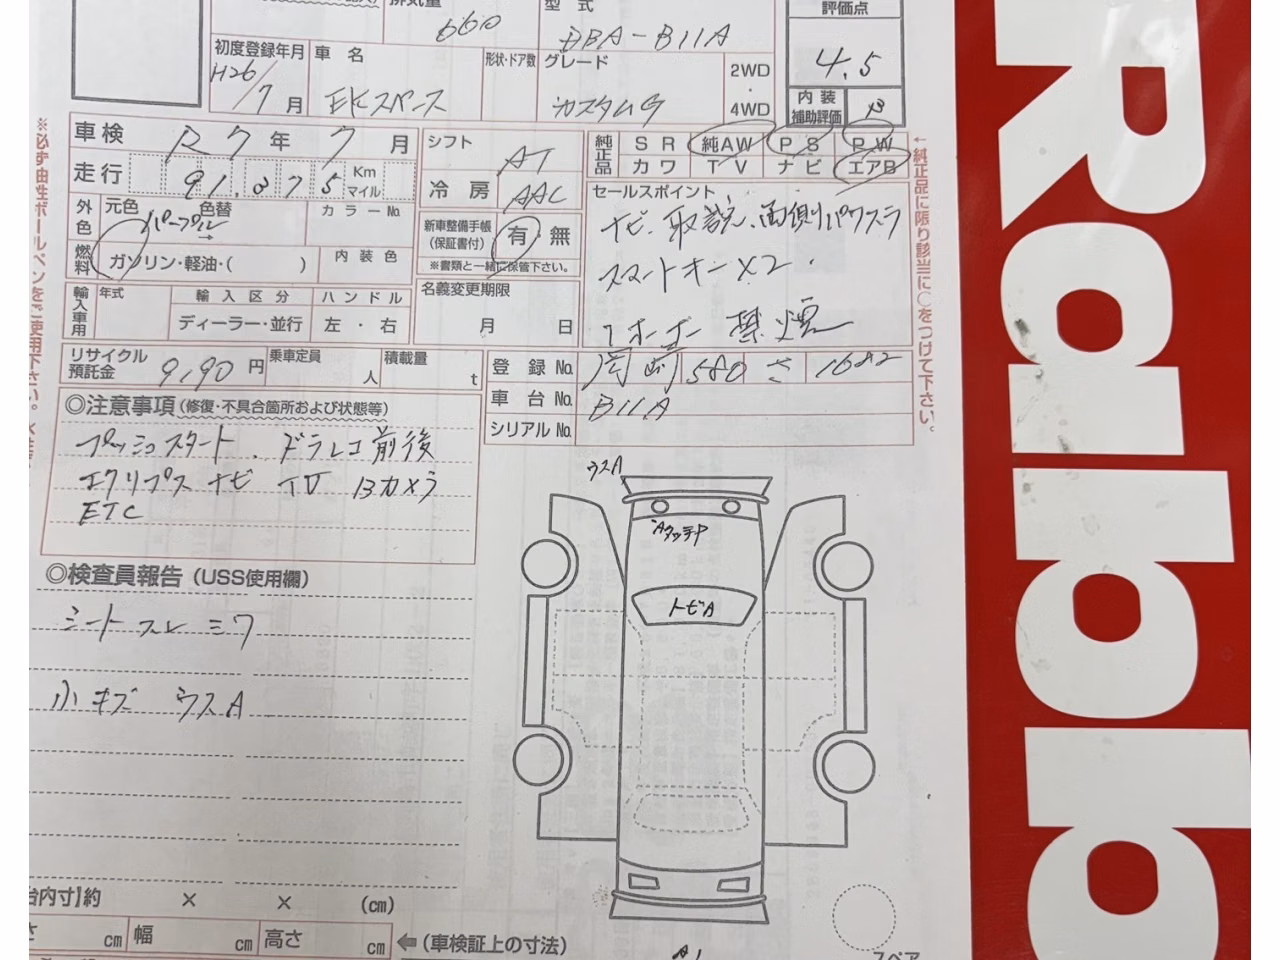 排気量
660
型 式
DBA-B11A
評価点
4.5
初度登録年月
H26/7 月
車 名
EKスペース
形状・ドア数
グレード
カスタムG
2WD
・
4WD
内 装
補助評価
B
車検 R7 年 7 月
走行 91,875 Km
マイル
シフト
AT
冷 房
AAC
純正品
S R
純AW
P S
P W
カ ワ
T V
ナ ビ
エアB
外色
元色
パープル
色替
→
カラーNo.
燃料
ガソリン・軽油・( )
内 装 色
新車整備手帳
(保証書付)
有・無
※書類と一緒に保管下さい。
セールスポイント
ナビ取説、両側パワスラ
スマートキー×2.
1オーナー 禁煙
輸入車用
年式
輸 入 区 分
ディーラー・並行
ハ ン ド ル
左 ・ 右
名義変更期限
月 日
リサイクル
預託金
9,190 円
乗車定員
人
積載量
t
登 録 No.
岡崎 580 さ 1682
車 台 No.
B11A
シリアルNo.
◎注意事項(修復・不具合箇所および状態等)
プッシュスタート. ドラレコ前後
エクリプスナビ TV Bカメラ
ETC
◎検査員報告(USS使用欄)
シートスレ ミワ
小キズ ウスA
ウスA
Aタッチ中
トビA
台内寸】約 × × (cm)
さ cm
幅 cm
高さ cm
←(車検証上の寸法)
A1
スペア
※必ず油性ボールペンをご使用下さい。
←純正品に限り該当に○をつけて下さい。
Rabbb